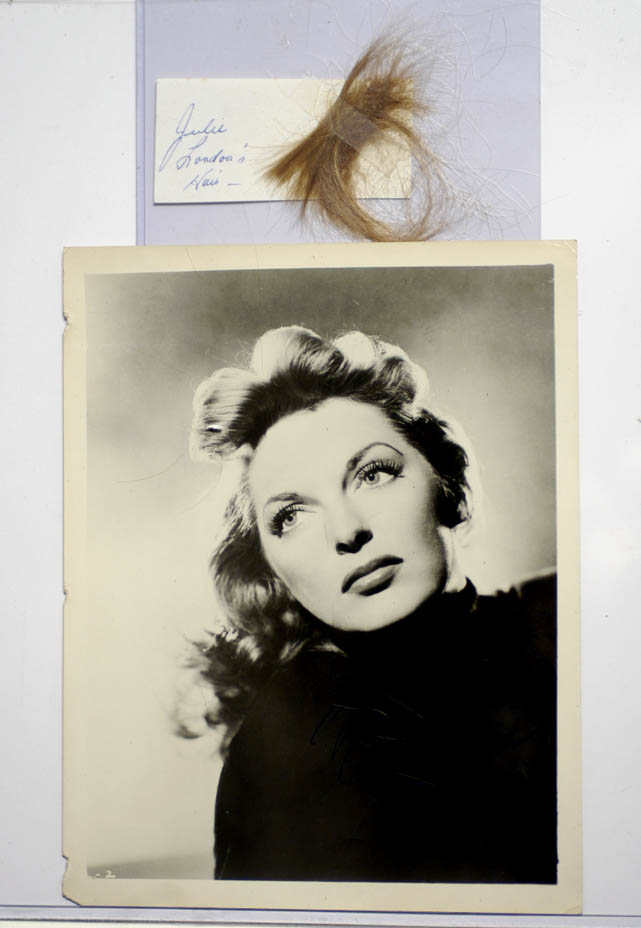 Julie
London's
Hair –
- 2